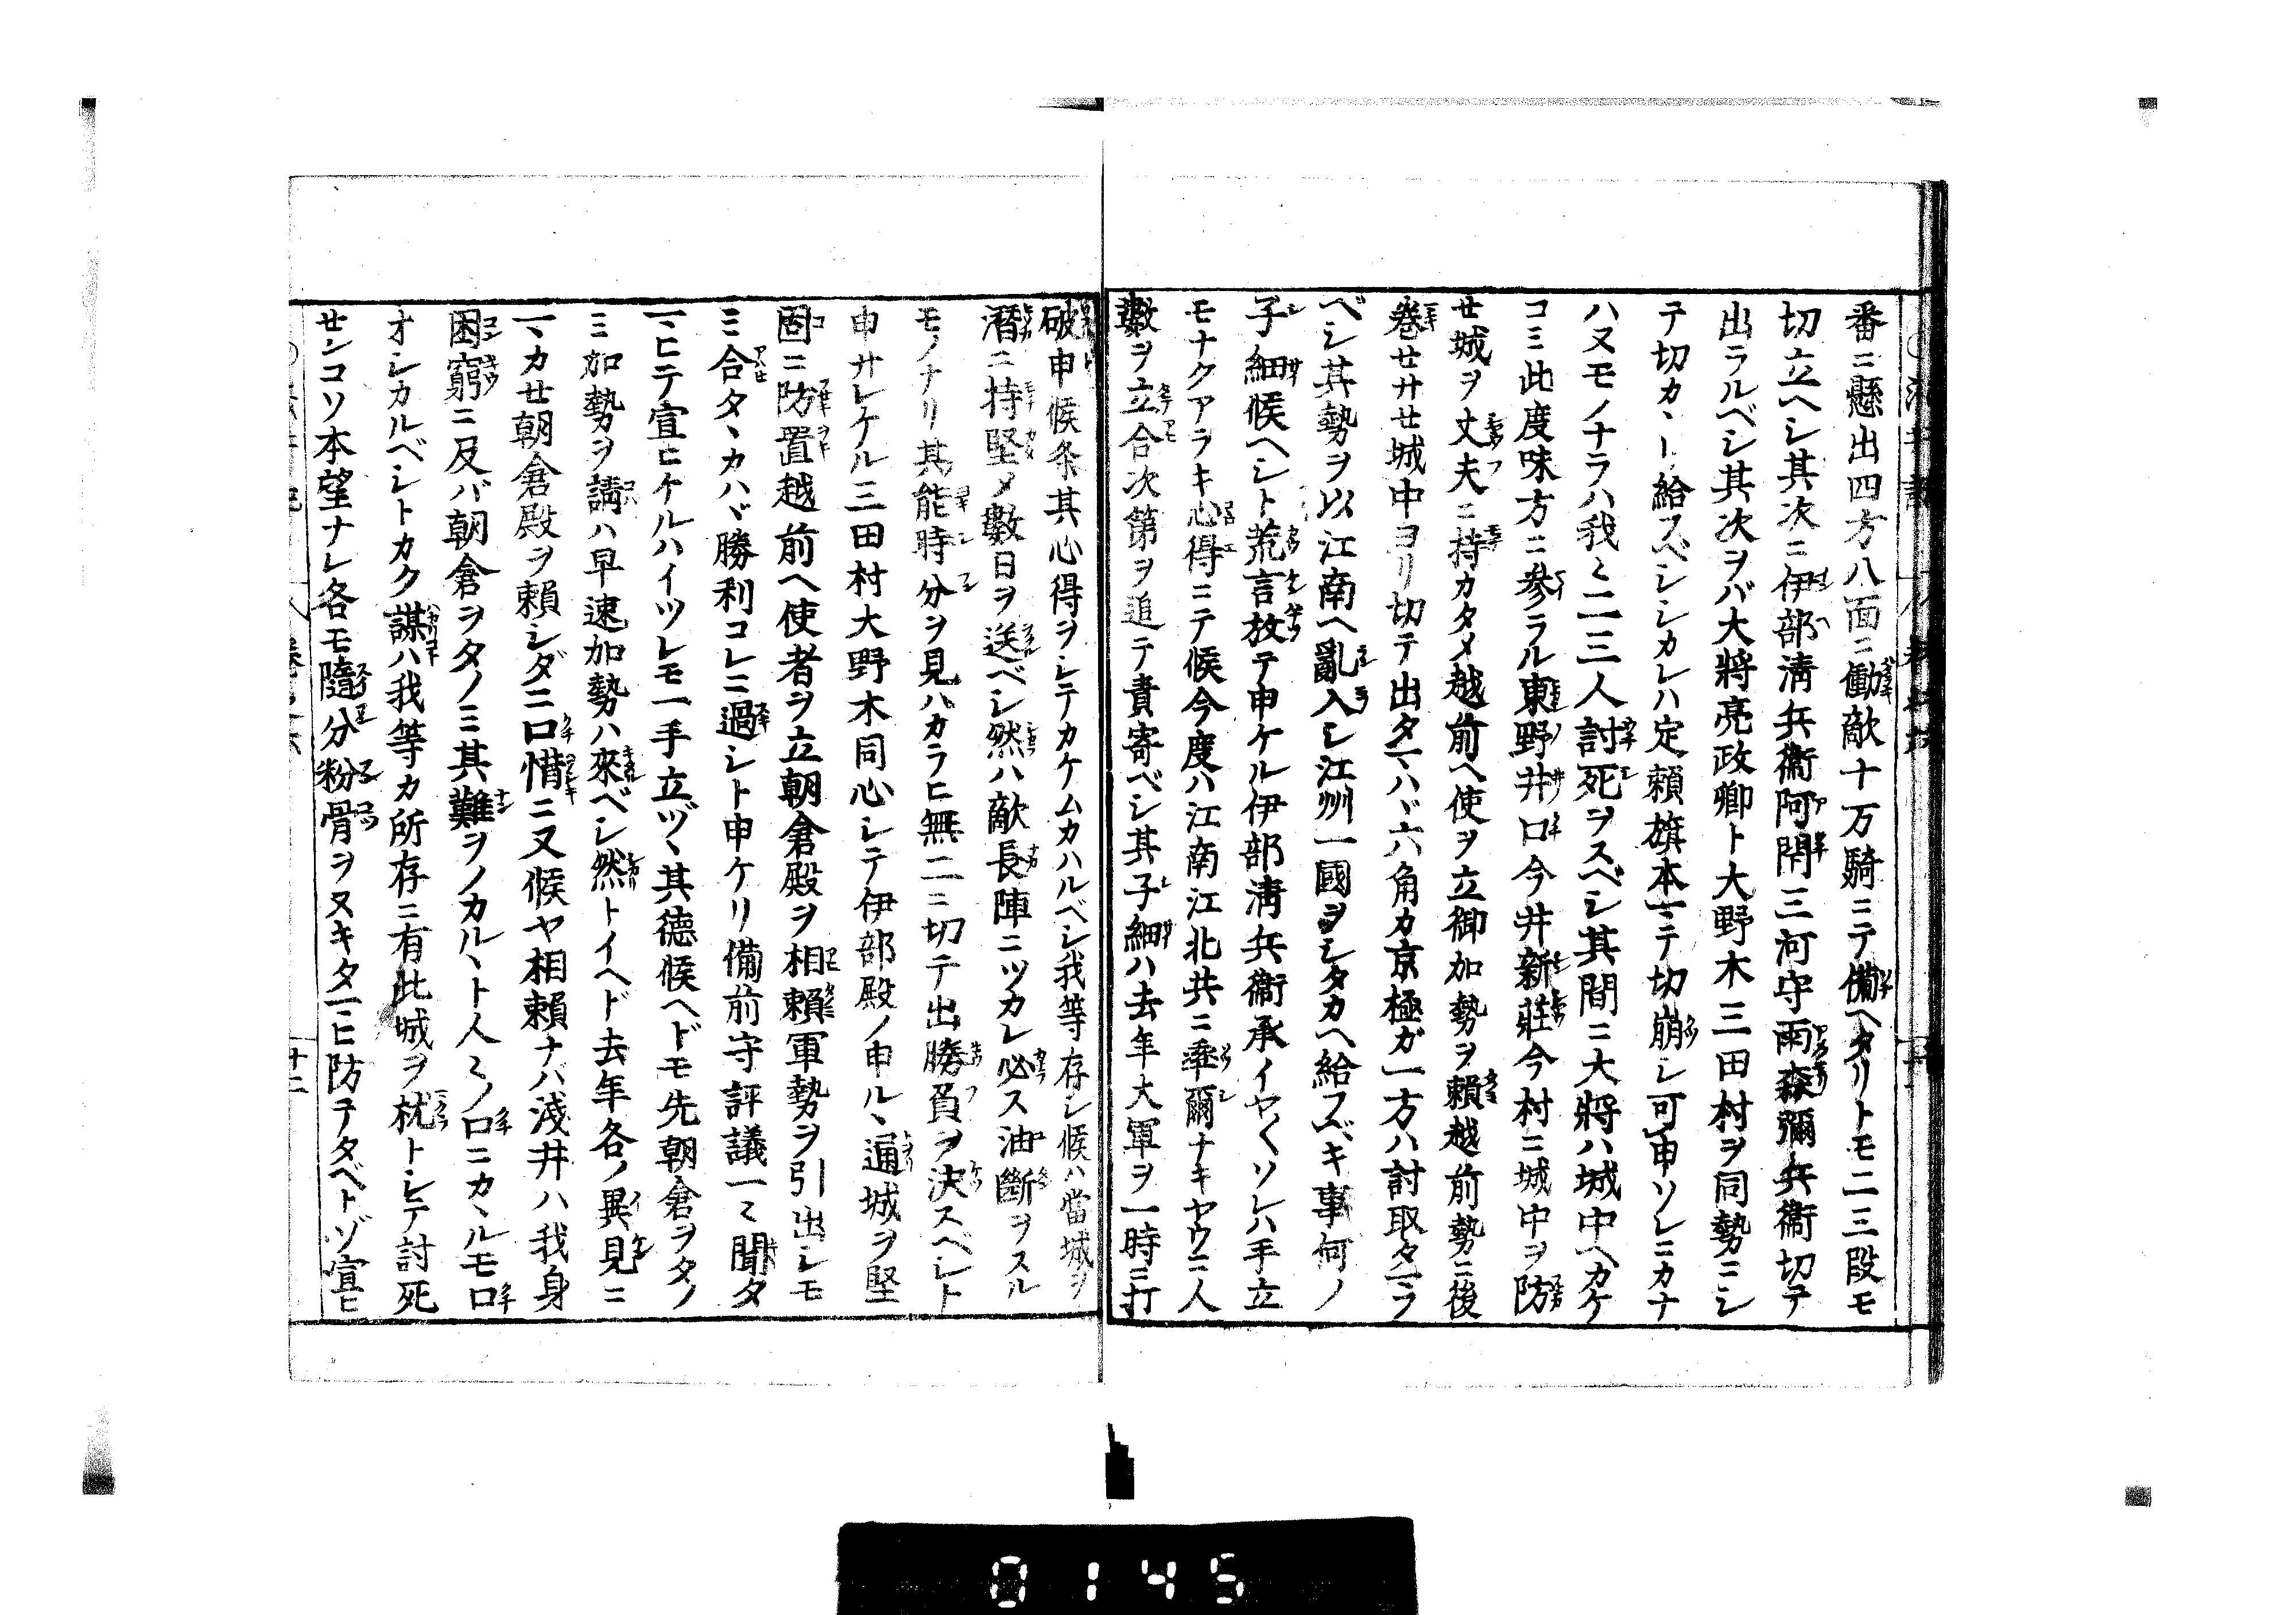 番ニ懸出四方八面ニ働敵十万騎ニテ備ヘタリトモ二三段モ
切立ヘシ其次ニ伊部淸兵衞阿閉三河守雨森彌兵衞切テ
出ラルベシ其次ヲバ大將亮政卿ト大野木三田村ヲ同勢ニシ
テ切カヽト給フベシシカレハ定頼旗本ニテ切崩シ可申ソレニカナ
ハヌモノナラハ我〻二三人討死ヲスベシ其間ニ大將ハ城中ヘカケ
コミ此度味方ニ參ラル東野井口今井新莊今村ニ城中ヲ防
セ城ヲ丈夫ニ持カタメ越前ヘ使ヲ立御加勢ヲ賴越前勢ニ後
卷セサセ城中ヨリ切テ出タヿハヾ六角カ京極ガ一方ハ討取タヿラフ
ベシ其勢ヲ以江南ヘ亂入シ江州一國ヲシタカヘ給フベキ事何ノ
子細候ヘシト荒言放テ申ケル伊部淸兵衞承イヤ〱ソレハ手立
モナクアラキ心得ニテ候今度ハ江南江北共ニ率爾ナキヤウニ人
數ヲ立合次第ヲ追テ責寄ベシ其子細ハ去年大軍ヲ一時ニ打
破申候条其心得ヲシテカケムカハルベシ我等存シ候ハ當城ヲ
潛ニ持堅メ數日ヲ送ベシ然ハ敵長陣ニツカレ必ス油斷ヲスル
モノナリ其能時分ヲ見ハカラヒ無二ニ切テ出勝負ヲ決スベシト
申サレケル三田村大野木同心シテ伊部殿ノ申ルヽ通城ヲ堅
固ニ防置越前ヘ使者ヲ立朝倉殿ヲ相賴軍勢ヲ引出シモ
ミ合タヽカハヾ勝利コレニ過シト申ケリ備前守評議一〻聞タ
ヿヒテ宣ヒケルハイツレモ一手立ヅヽ其德候ヘドモ先朝倉ヲタノ
ミ加勢ヲ請ハ早速加勢ハ來ベシ然トイヘド去年各ノ異見ニ
ヿカセ朝倉殿ヲ賴シダニ口惜ニ又候ヤ相賴ナハ淺井ハ我身
困窮ニ及バ朝倉ヲタノミ其難ヲノカルヽト人〻ノ口ニカヽルモ口
オシカルベシトカク謀ハ我等カ所存ニ有此城ヲ枕トシテ討死
センコソ本望ナレ各モ隨分粉骨ヲヌキタヿヒ防テタベトゾ宣ヒ
十二
0145